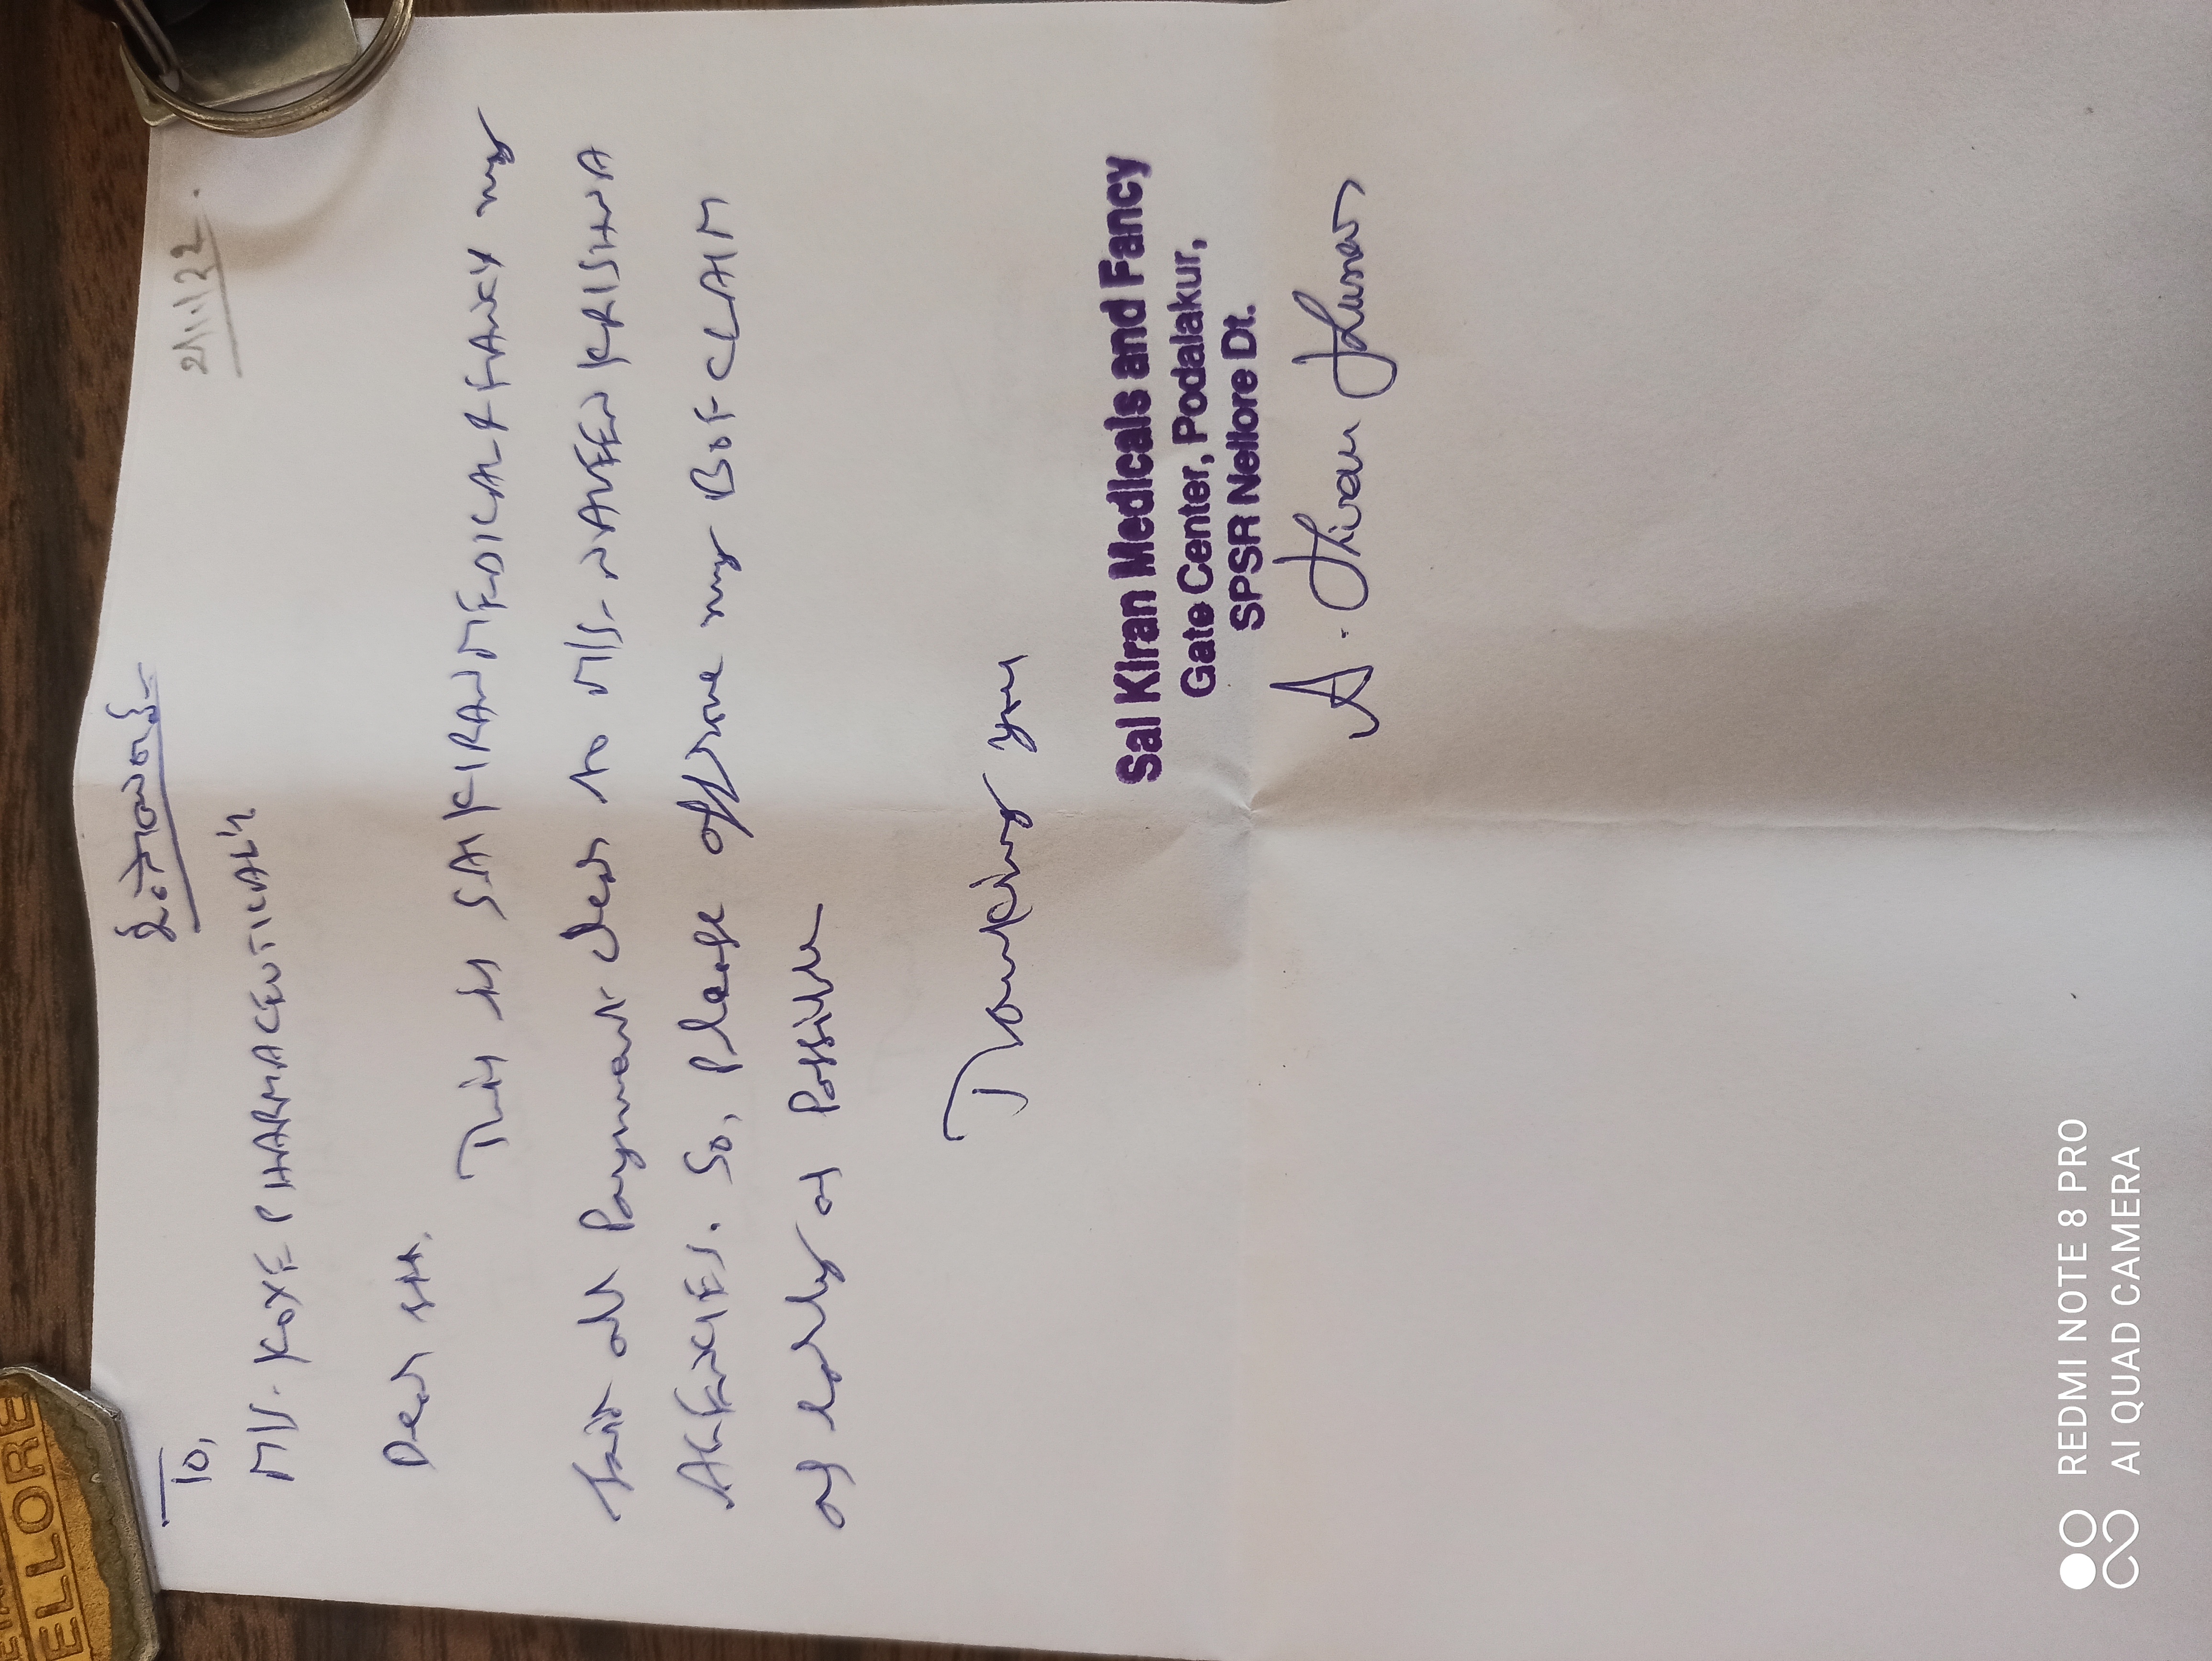 21/11/22.
To,
M/s. KOYE PHARMACEUTICAL's
Dear sir.
This is SAI KIRAN MEDICAL & FANCY my
all Payment clear to M/s. NAVEEN KRISHNA
AGENCIES. So, Please my B of CLAIM
as early as Possible
Thanking you
Sai Kiran Medicals and Fancy
Gate Center, Podalakur,
SPSR Nellore Dt.
A. Kiran Kumar
ELLORE
REDMI NOTE 8 PRO
AI QUAD CAMERA